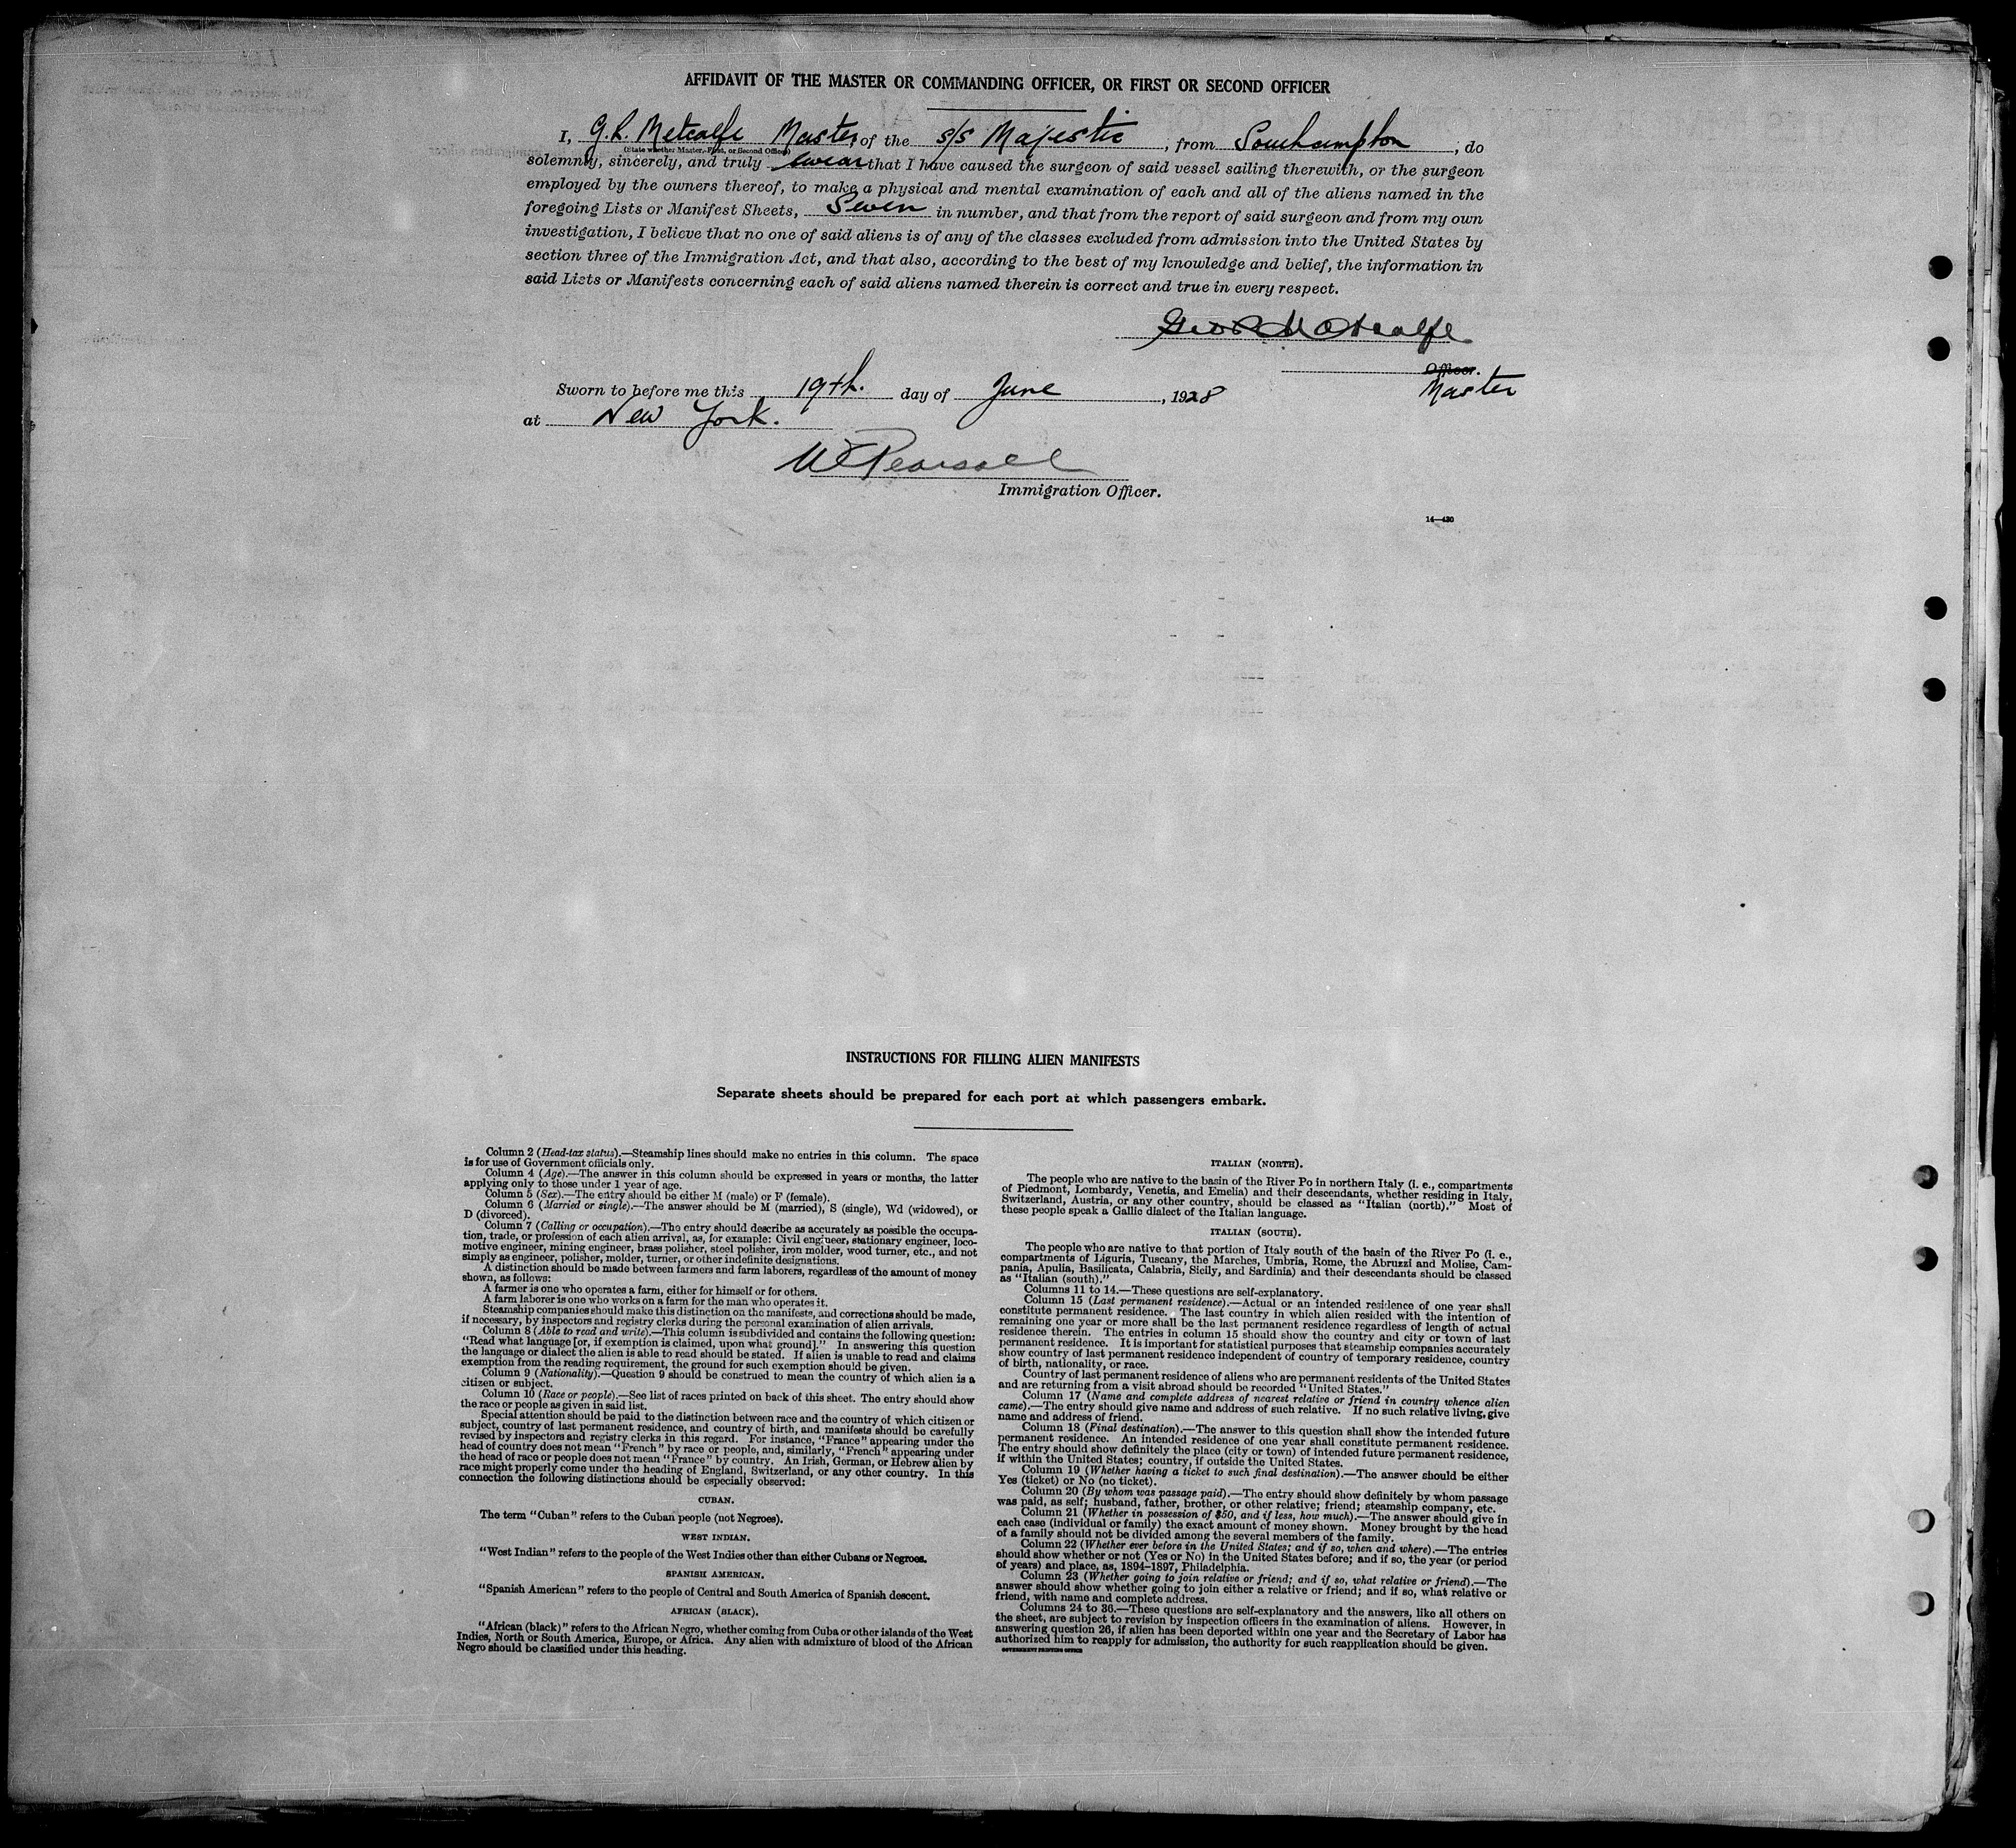 AFFIDAVIT OF THE MASTER OR COMMANDING OFFICER, OR FIRST OR SECOND OFFICER
I, G.R. Metcalfe Master, of the s/s Majestic, from Southampton, do
(State whether Master, First, or Second Officer)
solemnly, sincerely, and truly swear that I have caused the surgeon of said vessel sailing therewith, or the surgeon
employed by the owners thereof, to make a physical and mental examination of each and all of the aliens named in the
foregoing Lists or Manifest Sheets, Seven in number, and that from the report of said surgeon and from my own
investigation, I believe that no one of said aliens is of any of the classes excluded from admission into the United States by
section three of the Immigration Act, and that also, according to the best of my knowledge and belief, the information in
said Lists or Manifests concerning each of said aliens named therein is correct and true in every respect.
Geo R Metcalfe
Officer.
Master
Sworn to before me this 19th. day of June, 1928
at New York.
Pearsall
Immigration Officer.
14—430
INSTRUCTIONS FOR FILLING ALIEN MANIFESTS
Separate sheets should be prepared for each port at which passengers embark.
Column 2 (Head-tax status).—Steamship lines should make no entries in this column. The space
is for use of Government officials only.
Column 4 (Age).—The answer in this column should be expressed in years or months, the latter
applying only to those under 1 year of age.
Column 5 (Sex).—The entry should be either M (male) or F (female).
Column 6 (Married or single).—The answer should be M (married), S (single), Wd (widowed), or
D (divorced).
Column 7 (Calling or occupation).—The entry should describe as accurately as possible the occupa-
tion, trade, or profession of each alien arrival, as, for example: Civil engineer, stationary engineer, loco-
motive engineer, mining engineer, brass polisher, steel polisher, iron molder, wood turner, etc., and not
simply as engineer, polisher, molder, turner, or other indefinite designations.
A distinction should be made between farmers and farm laborers, regardless of the amount of money
shown, as follows:
A farmer is one who operates a farm, either for himself or for others.
A farm laborer is one who works on a farm for the man who operates it.
Steamship companies should make this distinction on the manifests, and corrections should be made,
if necessary, by inspectors and registry clerks during the personal examination of alien arrivals.
Column 8 (Able to read and write).—This column is subdivided and contains the following question:
"Read what language [or, if exemption is claimed, upon what ground]." In answering this question
the language or dialect the alien is able to read should be stated. If alien is unable to read and claims
exemption from the reading requirement, the ground for such exemption should be given.
Column 9 (Nationality).—Question 9 should be construed to mean the country of which alien is a
citizen or subject.
Column 10 (Race or people).—See list of races printed on back of this sheet. The entry should show
the race or people as given in said list.
Special attention should be paid to the distinction between race and the country of which citizen or
subject, country of last permanent residence, and country of birth, and manifests should be carefully
revised by inspectors and registry clerks in this regard. For instance, "France" appearing under the
head of country does not mean "French" by race or people, and, similarly, "French" appearing under
the head of race or people does not mean "France" by country. An Irish, German, or Hebrew alien by
race might properly come under the heading of England, Switzerland, or any other country. In this
connection the following distinctions should be especially observed:
CUBAN.
The term "Cuban" refers to the Cuban people (not Negroes).
WEST INDIAN.
"West Indian" refers to the people of the West Indies other than either Cubans or Negroes.
SPANISH AMERICAN.
"Spanish American" refers to the people of Central and South America of Spanish descent.
AFRICAN (BLACK).
"African (black)" refers to the African Negro, whether coming from Cuba or other islands of the West
Indies, North or South America, Europe, or Africa. Any alien with admixture of blood of the African
Negro should be classified under this heading.
ITALIAN (NORTH).
The people who are native to the basin of the River Po in northern Italy (i. e., compartments
of Piedmont, Lombardy, Venetia, and Emelia) and their descendants, whether residing in Italy,
Switzerland, Austria, or any other country, should be classed as "Italian (north)." Most of
these people speak a Gallic dialect of the Italian language.
ITALIAN (SOUTH).
The people who are native to that portion of Italy south of the basin of the River Po (i. e.,
compartments of Liguria, Tuscany, the Marches, Umbria, Rome, the Abruzzi and Molise, Cam-
pania, Apulia, Basilicata, Calabria, Sicily, and Sardinia) and their descendants should be classed
as "Italian (south)."
Columns 11 to 14.—These questions are self-explanatory.
Column 15 (Last permanent residence).—Actual or an intended residence of one year shall
constitute permanent residence. The last country in which alien resided with the intention of
remaining one year or more shall be the last permanent residence regardless of length of actual
residence therein. The entries in column 15 should show the country and city or town of last
permanent residence. It is important for statistical purposes that steamship companies accurately
show country of last permanent residence independent of country of temporary residence, country
of birth, nationality, or race.
Country of last permanent residence of aliens who are permanent residents of the United States
and are returning from a visit abroad should be recorded "United States."
Column 17 (Name and complete address of nearest relative or friend in country whence alien
came).—The entry should give name and address of such relative. If no such relative living, give
name and address of friend.
Column 18 (Final destination).—The answer to this question shall show the intended future
permanent residence. An intended residence of one year shall constitute permanent residence.
The entry should show definitely the place (city or town) of intended future permanent residence,
if within the United States; country, if outside the United States.
Column 19 (Whether having a ticket to such final destination).—The answer should be either
Yes (ticket) or No (no ticket).
Column 20 (By whom was passage paid).—The entry should show definitely by whom passage
was paid, as self; husband, father, brother, or other relative; friend; steamship company, etc.
Column 21 (Whether in possession of $50, and if less, how much).—The answer should give in
each case (individual or family) the exact amount of money shown. Money brought by the head
of a family should not be divided among the several members of the family.
Column 22 (Whether ever before in the United States; and if so, when and where).—The entries
should show whether or not (Yes or No) in the United States before; and if so, the year (or period
of years) and place, as, 1894-1897, Philadelphia.
Column 23 (Whether going to join relative or friend; and if so, what relative or friend).—The
answer should show whether going to join either a relative or friend; and if so, what relative or
friend, with name and complete address.
Columns 24 to 36.—These questions are self-explanatory and the answers, like all others on
the sheet, are subject to revision by inspection officers in the examination of aliens. However, in
answering question 26, if alien has been deported within one year and the Secretary of Labor has
authorized him to reapply for admission, the authority for such reapplication should be given.
GOVERNMENT PRINTING OFFICE